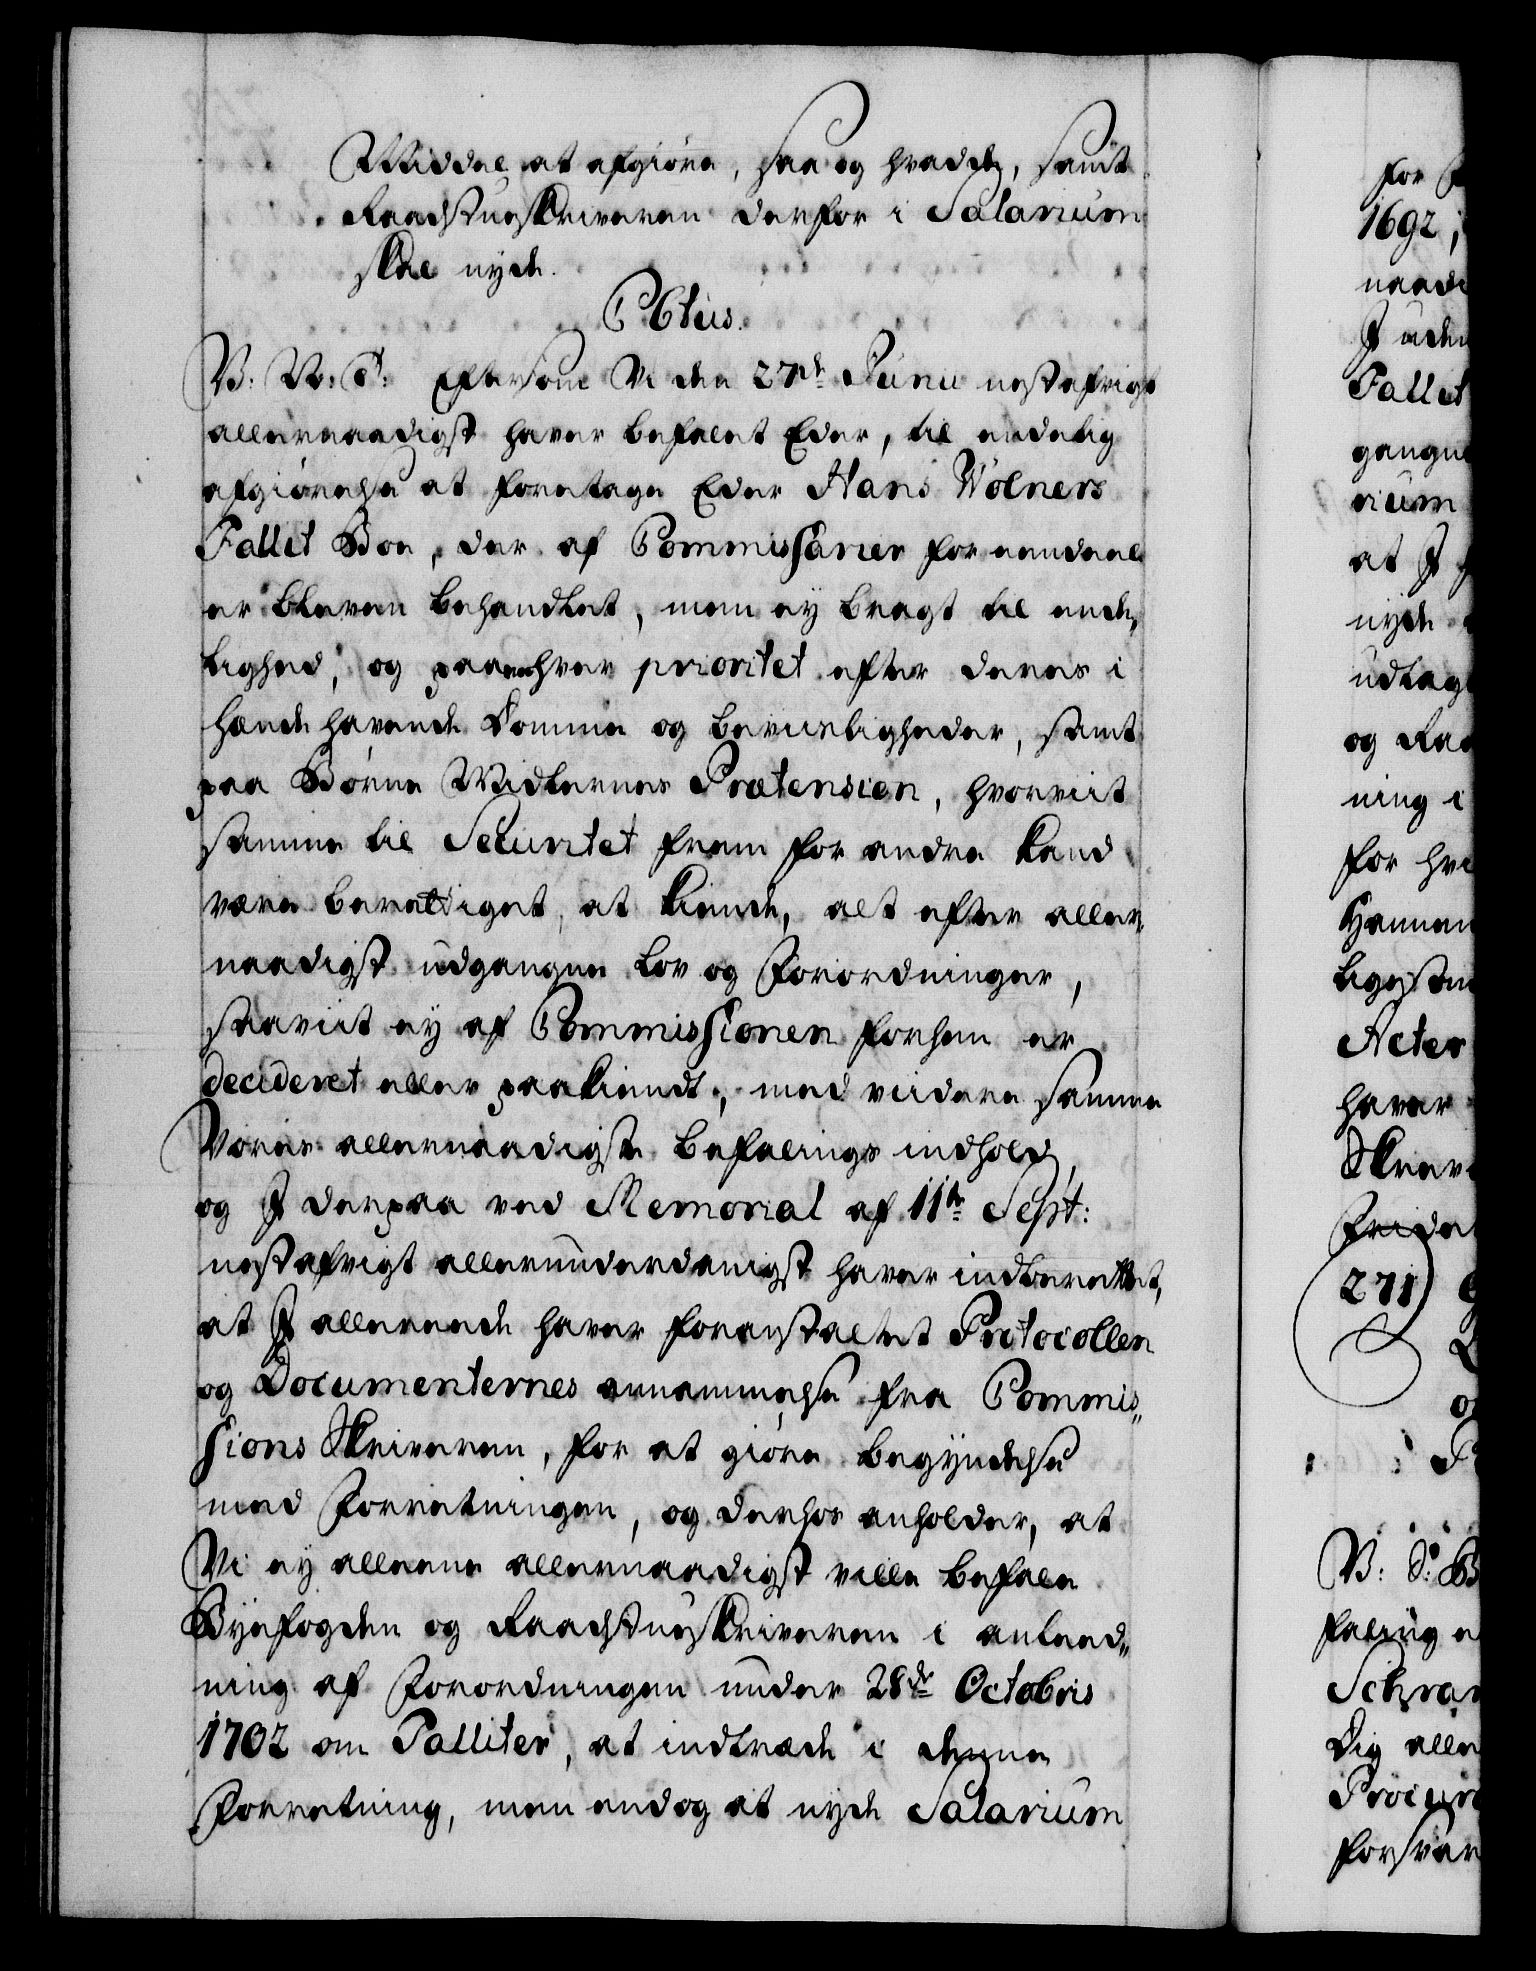 Middel at afgiöre, saa og hvad de, samt
Raadstueskriveren derfor i Salarium
skal nyde.
V: V: G: Eftersom Vi den 27de Junii nestafvigt
allernaadigst haver befalet Eder, til endelig
afgiörelse at foretage Eder Hans Wölners
Fallit Boe, der af Commissarier for eendeel
er bleven behandlet, men ey bragt til ende,
lighed, og paa enhver prioritet efter deres i
hænde havende Domme og beviisligheder, samt
paa Börne Midlernes Prætension, hvorviit
samme til Securitet frem for andre kand
være berettiget, at kiende, alt efter aller,
naadigst udgangne Lov og Forordninger,
saaviit ey af Commissionen forhen er
decideret eller paakiendt, med viidere samme
Vores allernaadigste befalings indhold,
og I derpaa ved Memorial af 11te Sept:
nestafvigt allerunderdanigst haver indberettet,
at I allerede haver foranstaltet Protocollen
og Documenternes annammelse fra Commis,,
sions Skriveren, for at giöre begyndelse
med Forretningen, og derhos anholder, at
Vi ey alleene allernaadigst ville befale
Byefogden og Raadstueskriveren i anleed,,
ning af Forordningen under 28de Octobris
1702 om Falliter, at indtræde i denne
Forretning, men endog at nyde Salarium
for
1692,
naadi
I uden
Fallit
gangne
rium
at I
nyde
udlag
og Raa
ning i
for hvi
Hannem
ligesom
Acter
haver
Skrev
271)
V: S: B
faling
Dig alle
forsvar